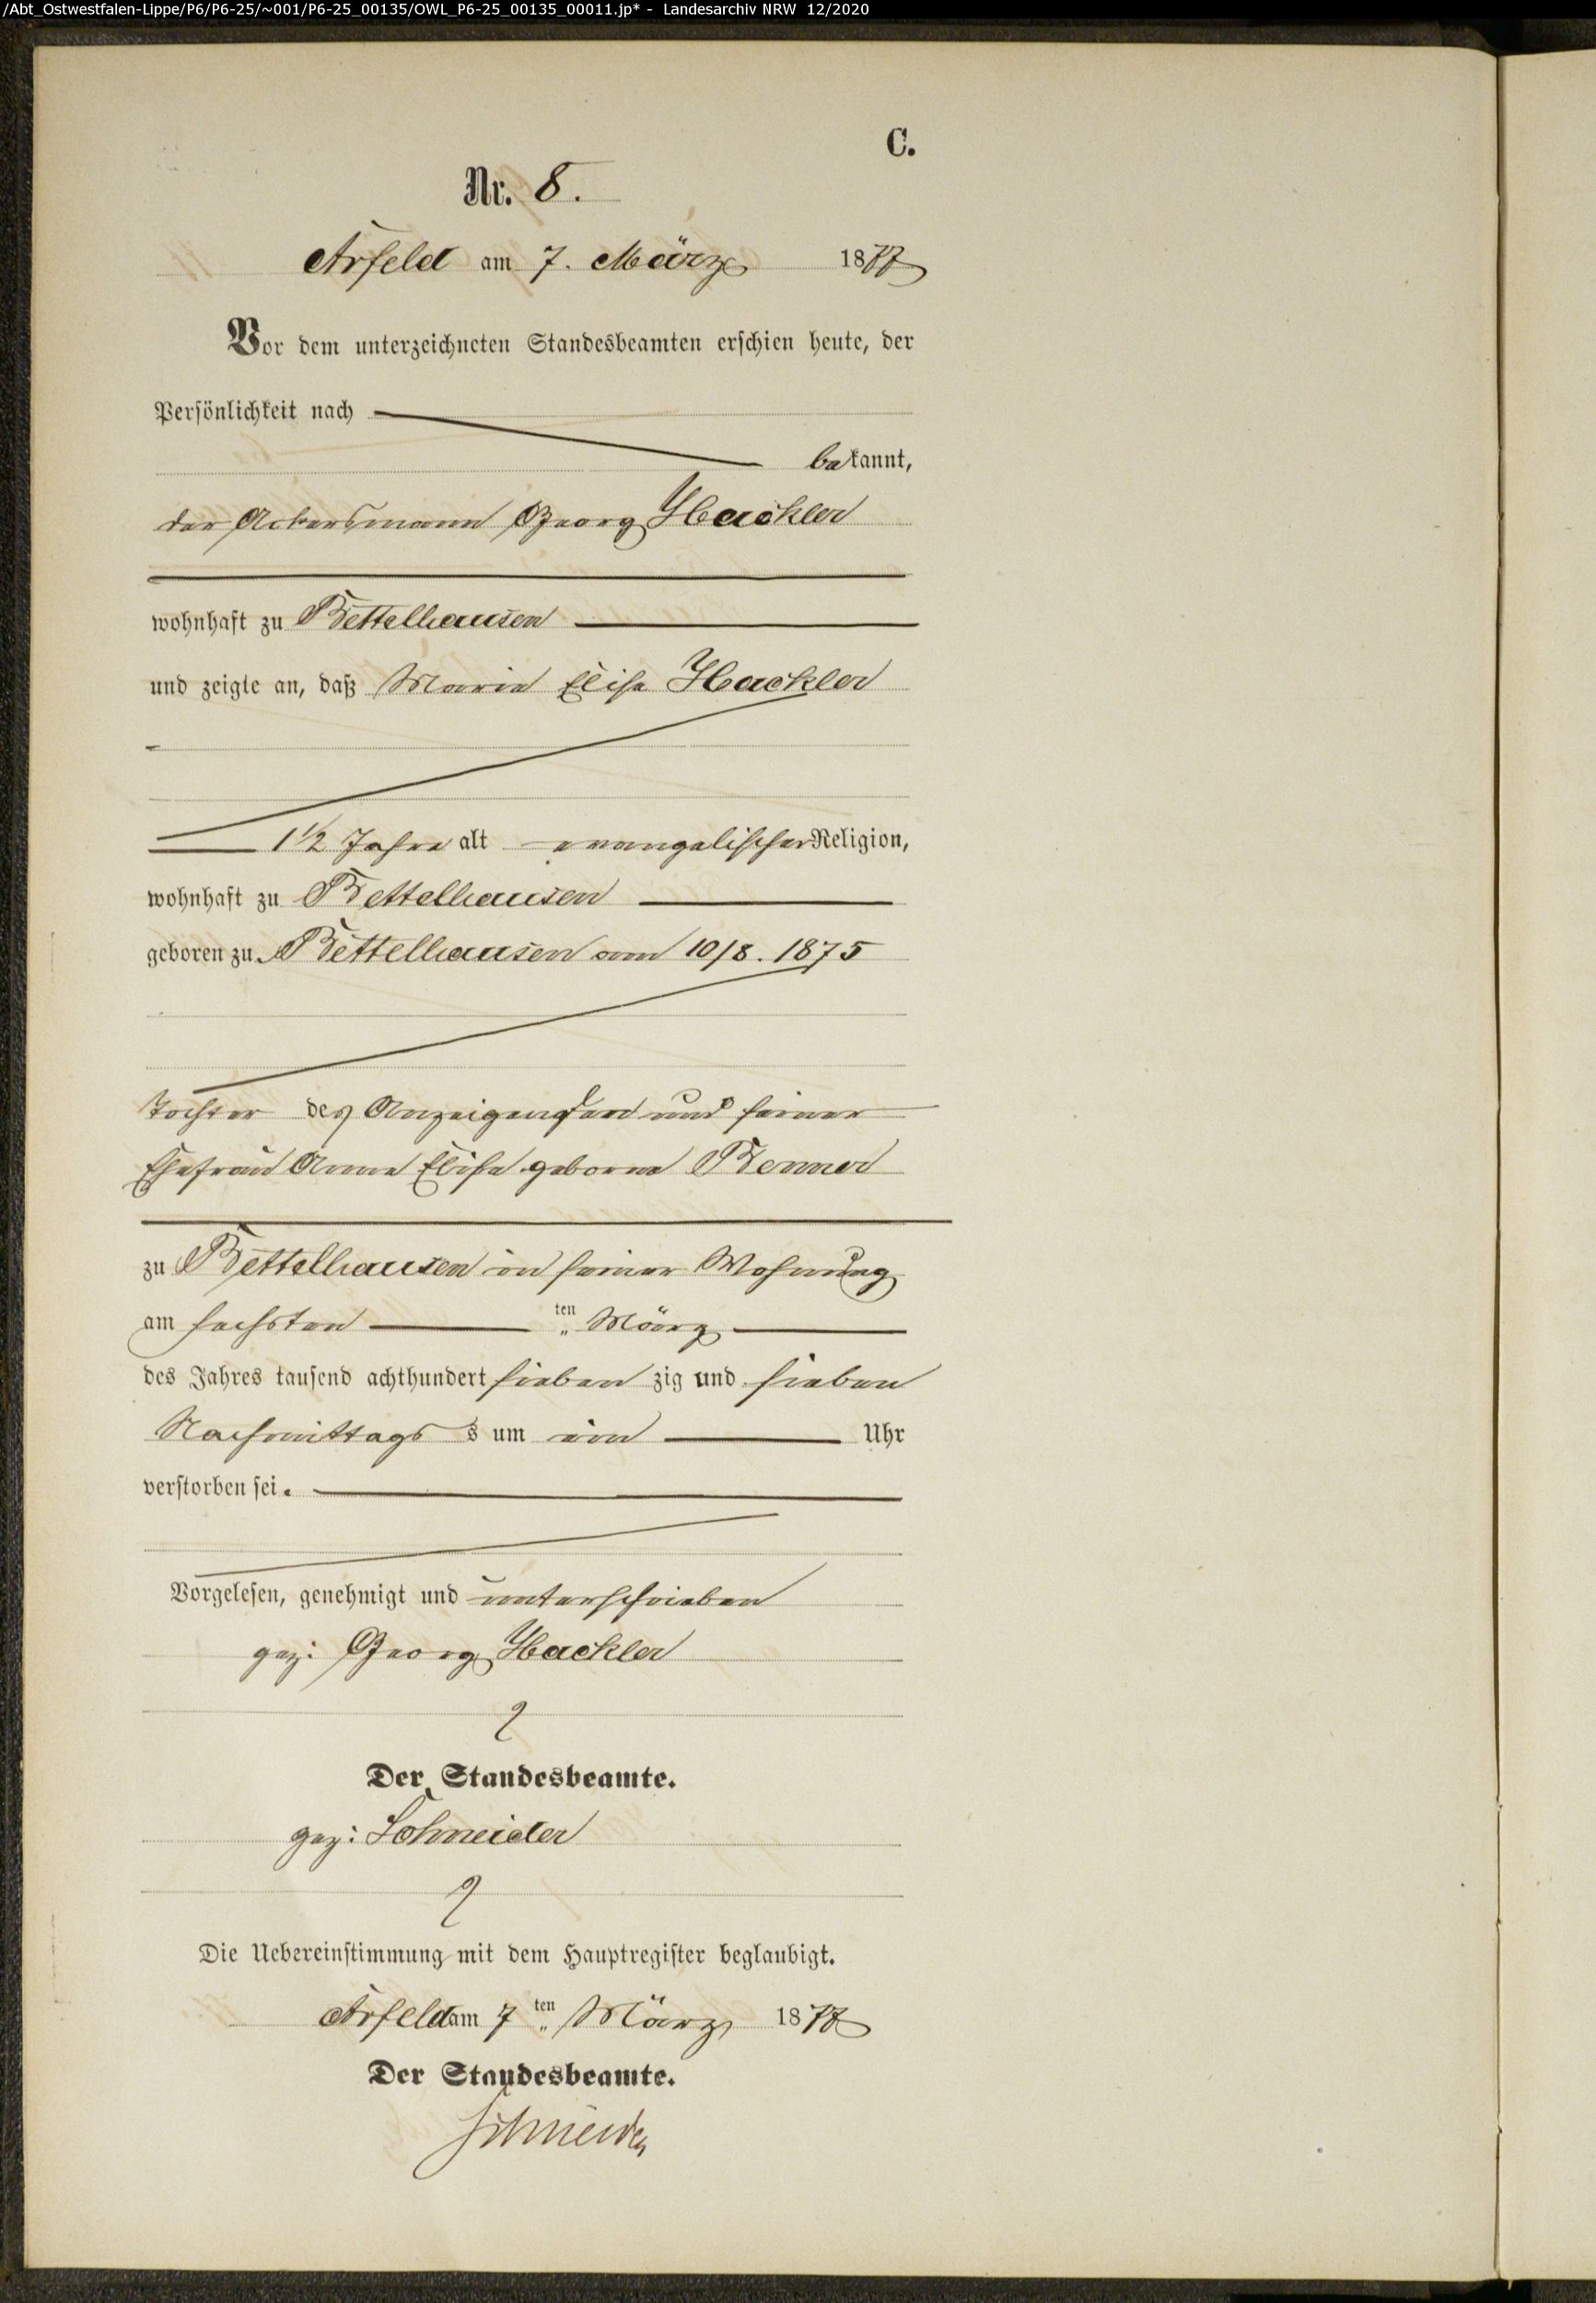 /Abt_Ostwestfalen-Lippe/P6/P6-25/~001/P6-25_00135/OWL_P6-25_00135_00011.jp* - Landesarchiv NRW 12/2020
C.
Nr. 8.
Arfeld am 7. März 1877
Vor dem unterzeichneten Standesbeamten erschien heute, der
Persönlichkeit nach
bekannt,
der Ackersmann Georg Hackler
wohnhaft zu Bettelhausen
und zeigte an, daß Maria Elise Hackler
1 1/2 Jahre alt evangelischer Religion,
wohnhaft zu Bettelhausen
geboren zu Bettelhausen am 10/8. 1875
Tochter des Anzeigenden und seiner
Ehefrau Anna Elise geborne Benner
zu Bettelhausen in seiner Wohnung
am sechsten ten März
des Jahres tausend achthundert sieben zig und sieben
Nachmittags s um ein Uhr
verstorben sei.
Vorgelesen, genehmigt und unterschrieben
gez: Georg Hackler
Der Standesbeamte.
gez: Schneider
Die Uebereinstimmung mit dem Hauptregister beglaubigt.
Arfeld am 7 ten März 1877
Der Standesbeamte.
Schneider